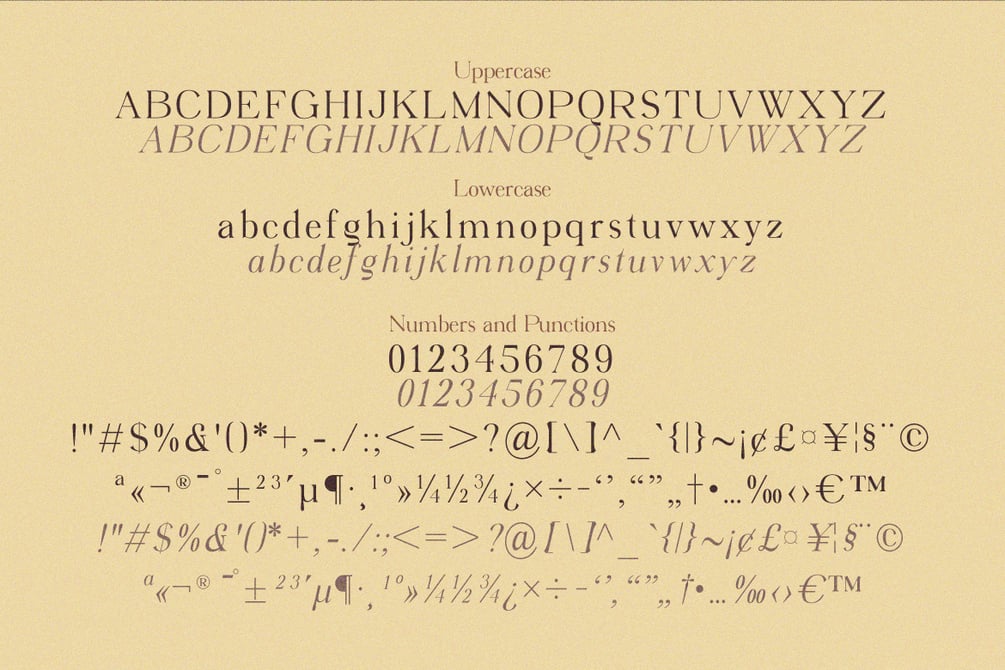 Uppercase
ABCDEFGHIJKLMNOPQRSTUVWXYZ
ABCDEFGHIJKLMNOPQRSTUVWXYZ
Lowercase
abcdefghijklmnopqrstuvwxyz
abcdefghijklmnopqrstuvwxyz
Numbers and Punctions
0123456789
0123456789
!"#$%&'()*+,-./:;<=>?@[\]^_`{|}~¡¢£¤¥¦§¨©
ª«¬®¯°±²³´µ¶·¸¹º»¼½¾¿×÷–‘’‚“”„†•…‰‹›€™
!"#$%&'()*+,-./:;<=>?@[\]^_`{|}~¡¢£¤¥¦§¨©
ª«¬®¯°±²³´µ¶·¸¹º»¼½¾¿×÷–‘’‚“”„†•…‰‹›€™